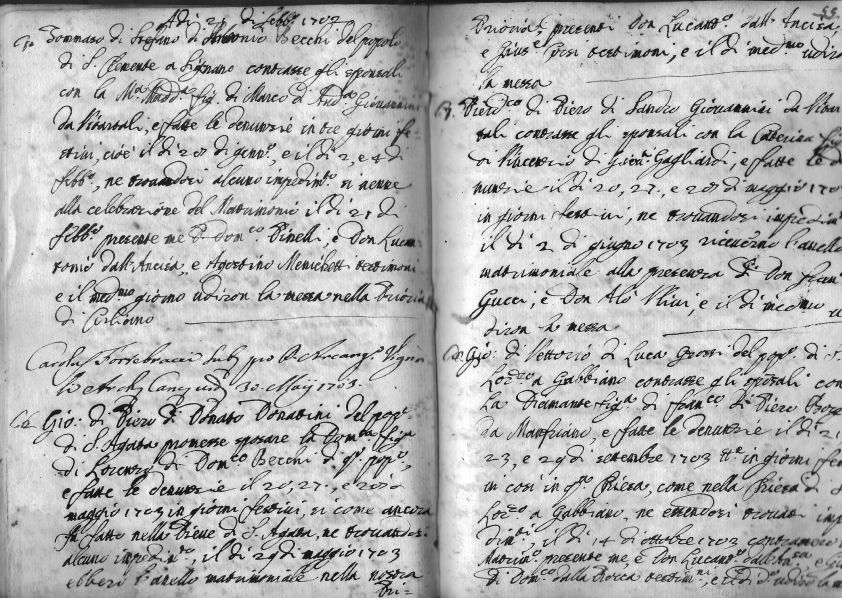 Adì 21 di Febb.º 1702
Tommaso di Stefano di Antonio Becchi del popolo
di S. Clemente a Signano contrasse gli sponsali
con la M.ª Madd.ª fig. di Marco d'And.ª Giovannini
da Vitartali, e fatte le denunzie in tre giorni fe=
stivi, cioè il dì 28 di genn.º, e il dì 2, e 4 di
febb.º, ne trovandosi alcuno impedim.to si venne
alla celebrazione del Matrimonio il dì 21 di
febb.º presente me P. Dom.co Pinelli, e Don Lucan=
tonio dall'Ancisa, e Agostino Menichetti testimoni
e il med.mo giorno udiron la messa nella Prioria
di Cigliano
Carolus Fortebracci sub pro D. Arcang.º
30. Maij 1703.
Gio: di Piero di Donato Donatini del pop.º
di S. Agata promesse sposare la Dom.ca fig.ª
di Lorenzo di Dom.co Becchi di q.º pop.º,
e fatte le denunzie il 20, 27, e 28 di
maggio 1703 in giorni festivi, si come ancora
fu fatto nella Pieve di S. Agata, ne trovandosi
alcuno impedim.to, il dì 29 di maggio 1703
ebbero l'anello matrimoniale nella nostra
Pri=
55
Prioria, presenti Don Lucant.º dall'Ancisa,
e Gius.e testimoni, e il dì med.mo udiro
la messa
Pier D.co di Piero di Sandro Giovannini da Vitar
tali contrasse gli sponsali con la Caterina fig
di Vincenzio di Giov: Gagliardi, e fatte le de
nunzie il dì 20, 27, e 28 di maggio 170
in giorni festivi, ne trovandosi impedim
il dì 2 di giugno 1703 riceverno l'anello
matrimoniale alla presenza di Don Fran
Gucci, e Don Alò Vivi, e il dì med.mo u
diron la messa
Gio: di Vettorio di Luca Grossi del pop.º di S.
Lor.co a Gabbiano contrasse gli sponsali con
la Diamante fig.ª di Fran.co di Piero
da Manfriano, e fatte le denunzie il dì 21
23, e 29 di settembre 1703 in giorni fes
tivi così in q.ª Chiesa, come nella Chiesa di S
Lor.co a Gabbiano, ne essendosi trovati imp
dim.ti, il dì 4 di ottobre 1703 contrassero
Matrim.º presente me, e Don Lucant.º dall'Ancisa e
di Dom.co dalla Rocca testim.ni, e il dì d.º udiro la m